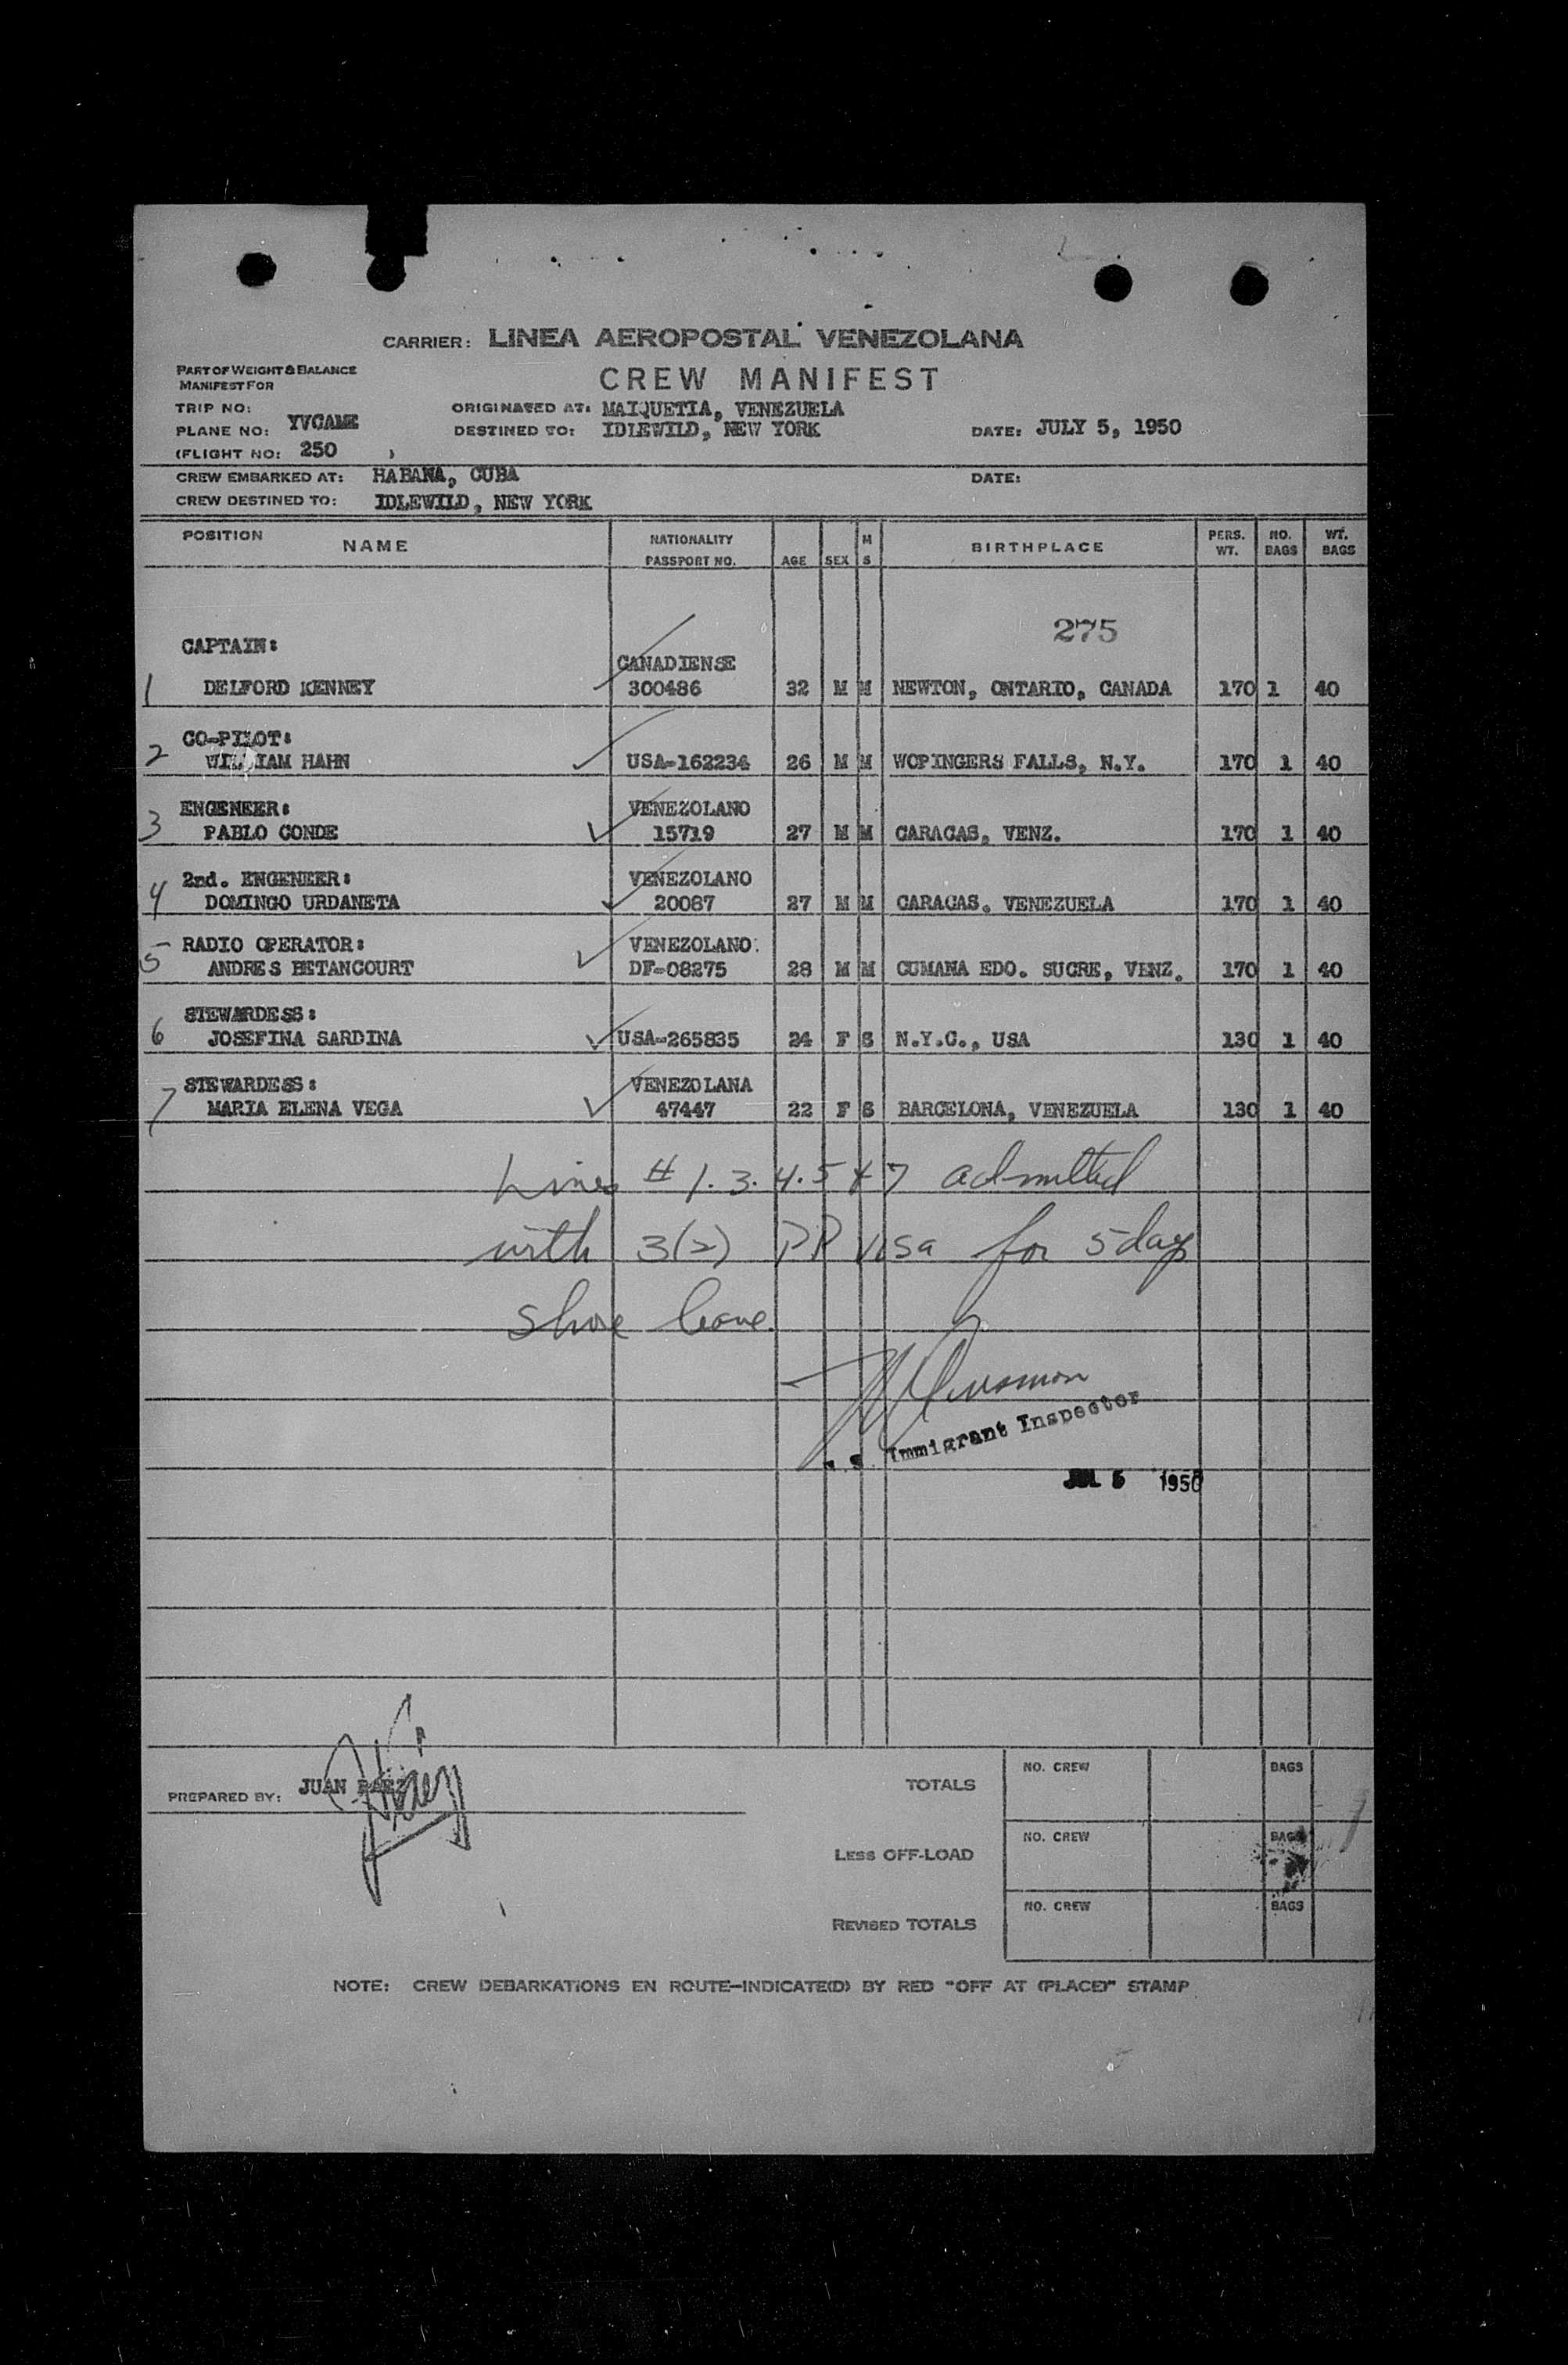 CARRIER: LINEA AEROPOSTAL VENEZOLANA
PART OF WEIGHT & BALANCE
MANIFEST FOR
CREW MANIFEST
TRIP NO:
ORIGINATED AT: MAIQUETIA, VENEZUELA
PLANE NO: YVCAME
DESTINED TO: IDLEWILD, NEW YORK
DATE: JULY 5, 1950
(FLIGHT NO: 250 )
CREW EMBARKED AT: HABANA, CUBA
DATE:
CREW DESTINED TO: IDLEWILD, NEW YORK
POSITION NAME NATIONALITY PASSPORT NO. AGE SEX M S BIRTHPLACE PERS. WT. NO. BAGS WT. BAGS
275
CAPTAIN:
CANADIENSE
1 DELFORD KENNEY 300486 32 M M NEWTON, ONTARIO, CANADA 170 1 40
CO-PILOT:
2 WILLIAM HAHN USA-162234 26 M M WOPINGERS FALLS, N.Y. 170 1 40
ENGENEER: VENEZOLANO
3 PABLO CONDE 15719 27 M M CARACAS, VENZ. 170 1 40
2nd. ENGENEER: VENEZOLANO
4 DOMINGO URDANETA 20087 27 M M CARACAS. VENEZUELA 170 1 40
RADIO OPERATOR: VENEZOLANO
5 ANDRES BETANCOURT DF-08275 28 M M CUMANA EDO. SUCRE, VENZ. 170 1 40
STEWARDESS:
6 JOSEFINA SARDINA USA-265835 24 F S N.Y.C., USA 130 1 40
STEWARDESS: VENEZOLANA
7 MARIA ELENA VEGA 47447 22 F S BARCELONA, VENEZUELA 130 1 40
Lines # 1. 3. 4. 5 & 7 admitted
with 3(2) PP visa for 5 days
shore leave.
Immigrant Inspector
JUL 5 1950
PREPARED BY: JUAN PAEZ
TOTALS NO. CREW BAGS
LESS OFF-LOAD NO. CREW BAGS
REVISED TOTALS NO. CREW BAGS
NOTE: CREW DEBARKATIONS EN ROUTE—INDICATE(D) BY RED "OFF AT (PLACE)" STAMP